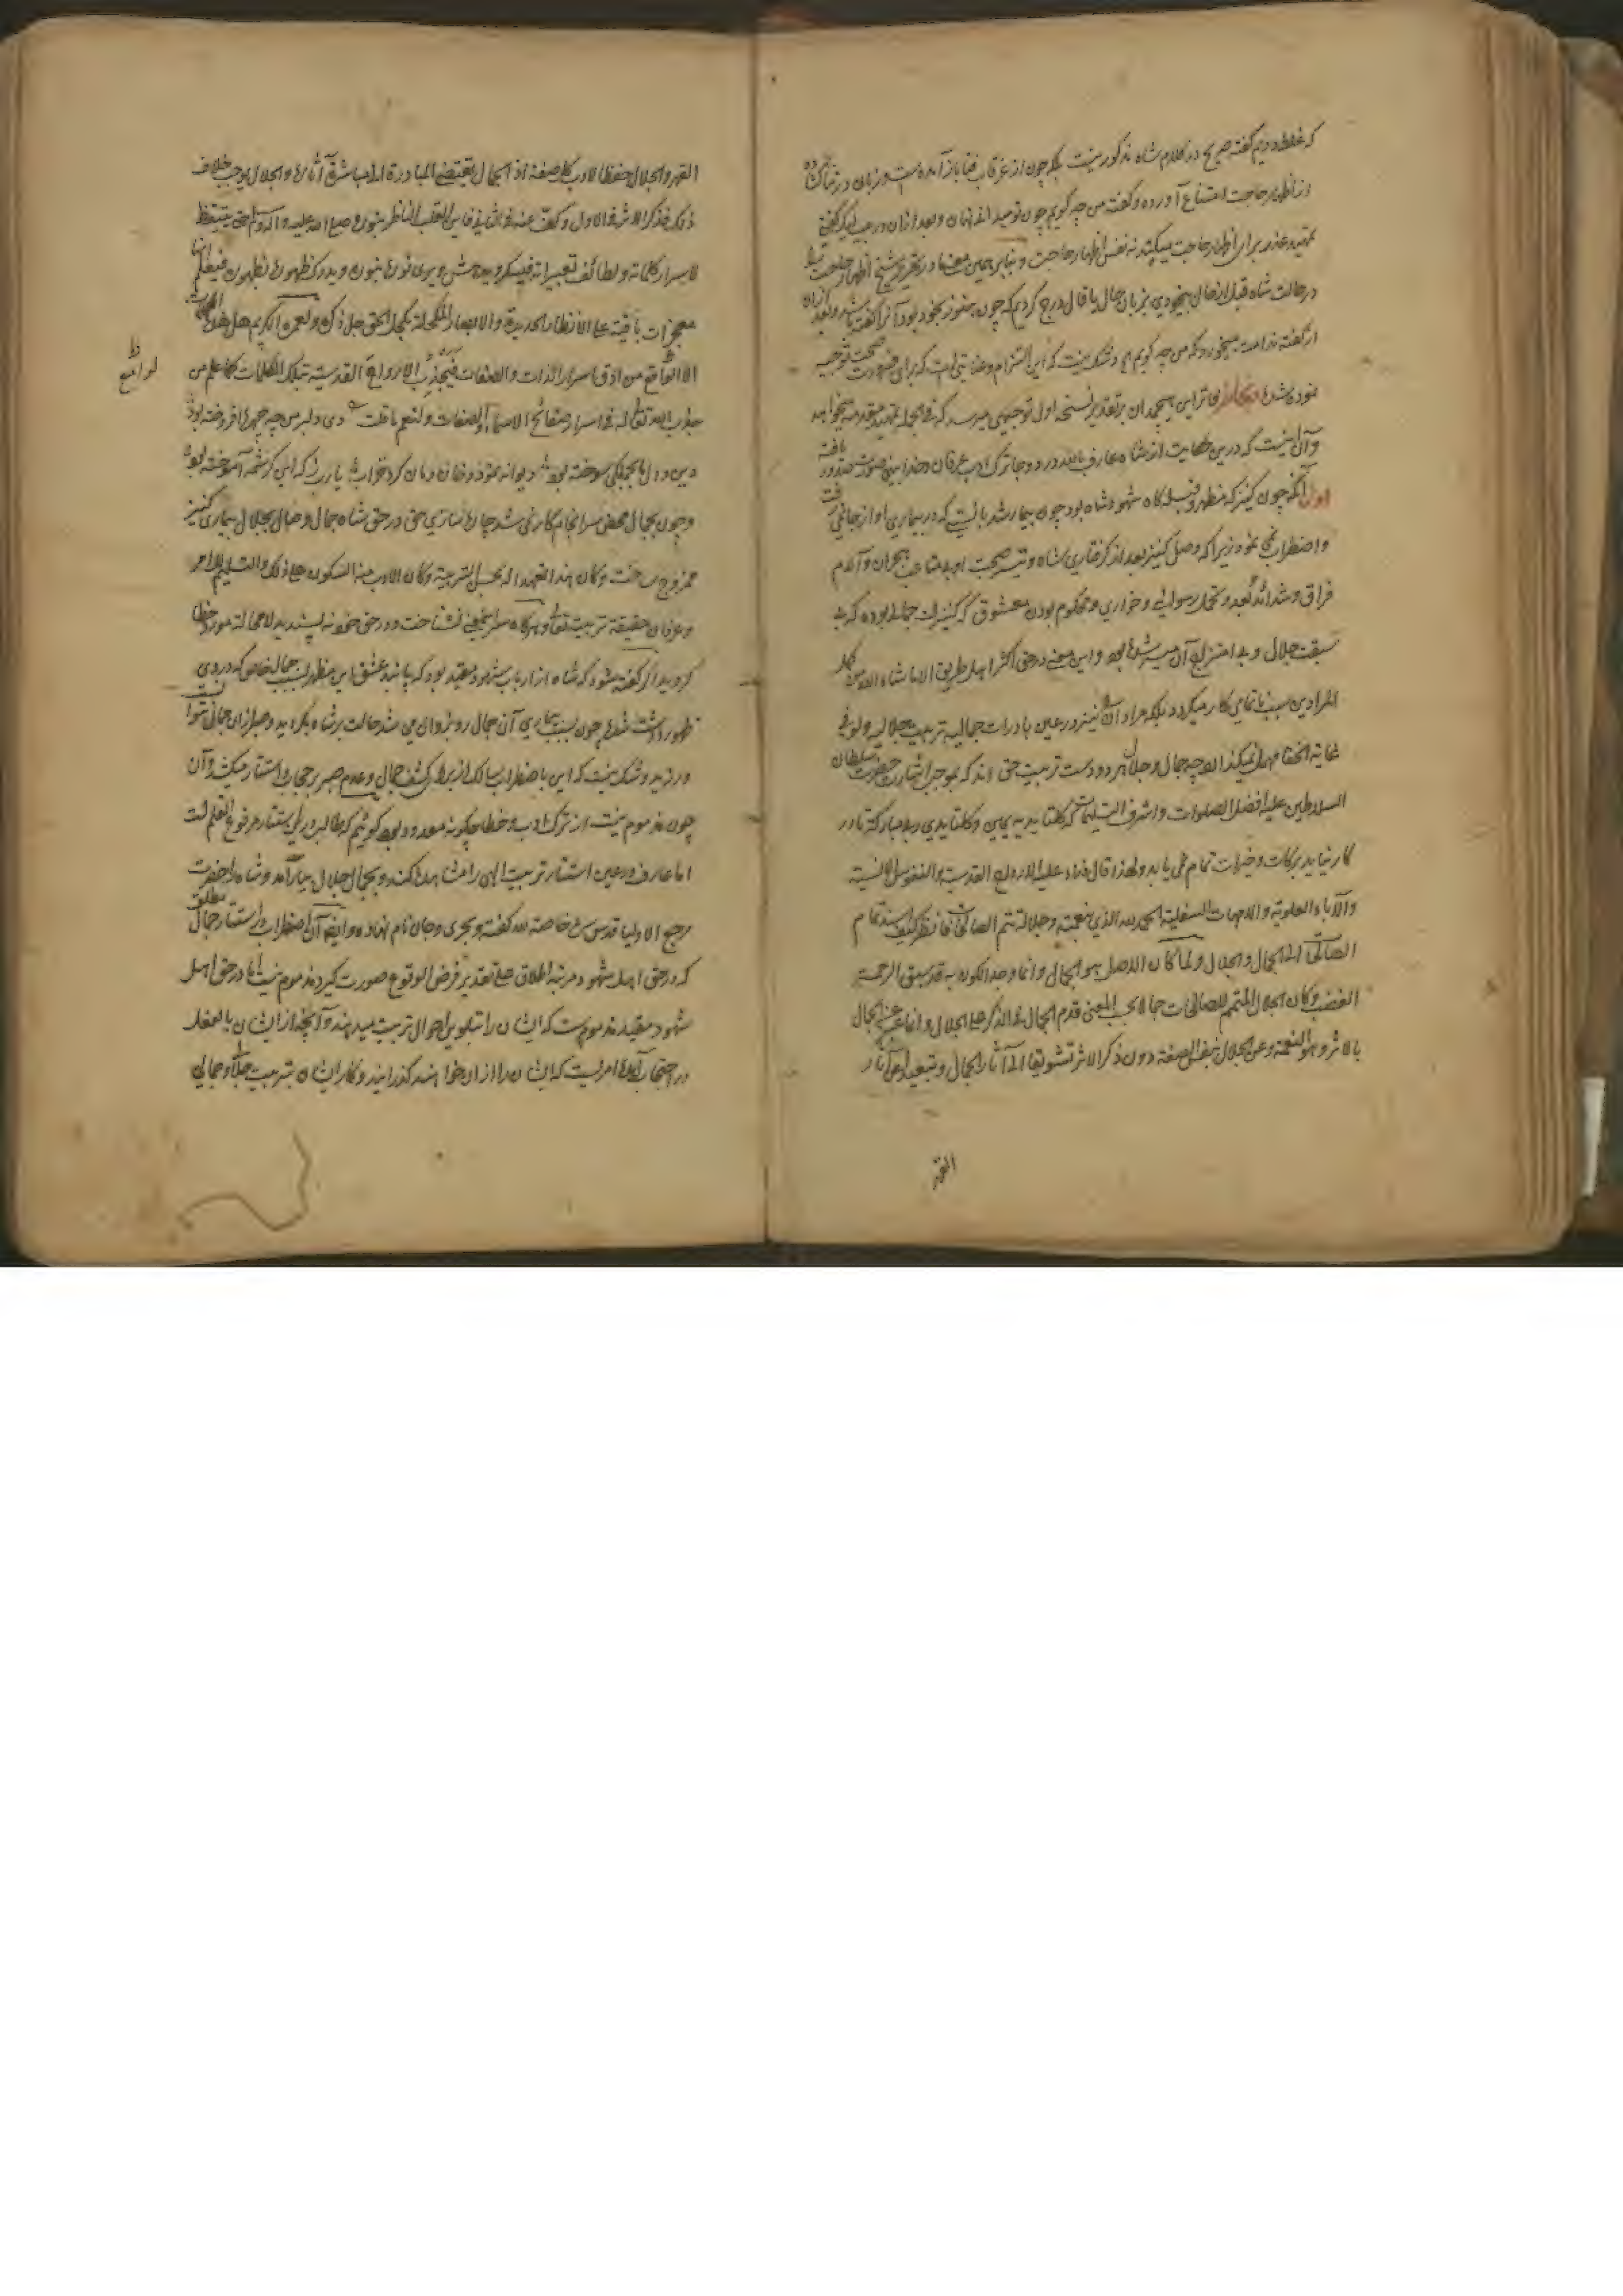 که غلط و دیم گفته صریح در کلام شاه مذکور نیست بلکه چون از غرقاب فنا باز آمده است و زبان در
از اظهار حاجت امتناع آورده و گفته من چه گویم چون تو میدانی نهان و بعد ازان در
تمهید عذر برای اظهار حاجت میکند نه نفس اظهار حاجت و بنابر همین معنی در تقریر شیخ اظهار حاجت
در حالت شاه قبل از حال بیخودی بزبان حال یا قال درج کردیم که چون هنوز بخود بود آنرا گفته باشد و بعد ازان
از گفته ندامت میخورد که من چه گویم و شک نیست که این التزام و عنایتی است که برای ضرورت صحت توجیه
نموده شد بخاطر فاتر این هیچمدان بر تقدیر نسخه اول توجیهی میرسد که فی الجمله تمهید مقدمه میخواهد
و آن اینست که درین حکایت از شاه عارف بالله در دو جا ترک ادب عرفان و خدا بینی صورت صدور یافته
اول آنکه چون کنیزک مظهر و قبله گاه شهود شاه بود چون بیمار شد بایست که در بیماری او از جا نمی رفت
و اضطراب نمی نمود زیرا که وصل کنیز بعد از گرفتاری شاه و تیسر صحبت او بلا متاعب هجران و آلام
فراق و شدائد بُعد و تحمل رسوائی و خواری و محکوم بودن معشوق که کنیزست جمالی بوده که بی
سبقت جلال و بی امتزاج آن میسر شده بود و این معنی در حق اکثر اهل طریق الا ما شاء الله من کمل
المرادین سبب ناتمامی کار میگردد بلکه مراد آن نیز در عین بادرات جمالیه تربیت جلالیه ولو فی
غایة الخفا مهمل نمیگذارند چه جمال و جلال هر دو دست تربیت حق اند که بموجب اشارت حضرت سلطان
السلاطین علیه افضل الصلوات و اشرف التسلیمات که کلتا یدیه یمین و کلتا یدی ربی مبارکة تا در
کار نیاید برکات و خیرات تمام نمی یابد و لهذا قال فداه علیه الارواح القدسیة و النفوس الانسیة
و الآباء العلویة و الامهات السفلیة الحمد لله الذی بنعمته و جلاله تتم الصالحات فانظر کیف اسند تمام
الصالحات الی الجمال و الجلال و لما کان الاصل هو الجمال و انما وجد الکون به قد سبق الرحمة
الغضب و کان الجلال المتمم للصالحات جمالا بحسب المعنی قدم الجمال فی الذکر علی الجلال و انما عبر عن الجمال
بالاثر و هو النعمة و عن الجلال بنفس الصفة دون ذکر الاثر تشویقا الی آثار الجمال و تبعیدا عن آثار
القهر
القهر و الجلال حفظا لادب کل صفة اذ الجمال یقتضی المبادرة الی مباشرة آثاره و الجلال یوجب خلاف
ذلک فذکر الاثر فی الاول و کف عنه فی الثانی فاین القلب الناظر بنوره صلی الله علیه و آله و سلم حتی یستیقظ
لاسرار کلماته و لطائف تعبیراته فیسکر و یدهش و یری نوره بنوره و یدرک ظهوره بظهوره فیعلم انها
معجزات باقیة علی الانظار الحدیدة و الابصار المکحلة بکحل الحق جل ذکره و لعمره الکریم هل هذه الکلمات
الا اذواق من اذواق اسرار الذات و الصفات فیجذب الارواح القدسیة بتلک الکلمات کما علم من
لوامع ظ
جذب الله تعالی له فی اسرار صفائح الاسماء و الصفات و لنعم ما قلت دی دلبر من چه چهره افروخته بود
دین و دل ما بجملگی سوخته بود دیوانه نمود و خان و مان کرد خراب یا رب ز که این کرشمه آموخته بود
و چون بجمال محض سرانجام کار نمی شد چاره سازی حق در حق شاه جمال وصال بجلال بیماری کنیز
ممزوج ساخت و کان هذا القهر اللهی محل التربیة و کان الادب هنا السکون علی ذلک و التسلیم للامر
و عرفان حقیقة تربیت تعالی و بهرگاه سلطان معنی نشناخت و در حق خود نه پسندید لا محاله مورد خطا
گردید اگر گفته شود که شاه از ارباب شهود مقید بود که پابند عشق این مظهر بسبب جمال خاص که در وی
ظهور داشت شده چون بسبب بیماری آن جمال رو بزوال می شد حالت بر شاه بگردید و صبر ازان جمال نتوانست
ورزید و شک نیست که این با ضطراب سالک از برای کشف جمال و عدم صبر بر حجاب استتار میکشد و آن
چون مذموم نیست از ترک ادب و خطا چگونه معدود بود گوئیم که طالب در طی استتار مرفوع القلم است
اما عارف در عین استتار تربیت الهی را مشاهده کند و بجمال جلال بیارامد و شاه را حضرت
مرجع الاولیا قدس سره خاصة الله گفته و بحری و جان نام نهاده و ایضا آن اضطراب در استتار جمال مطلق
که در حق اهل شهود مرتبه اطلاق علی تقدیر فرض الوقوع صورت گیرد مذموم نیست اما در حق اهل
شهود مقید مذموم است که ایشان را بتلوین احوال تربیت میدهند و آنچه از ایشان بالفعل
در احتجاب آید امریست که ایشان را ازان خواهند گذرانید و کار ایشان بتربیت جلال و جمالی